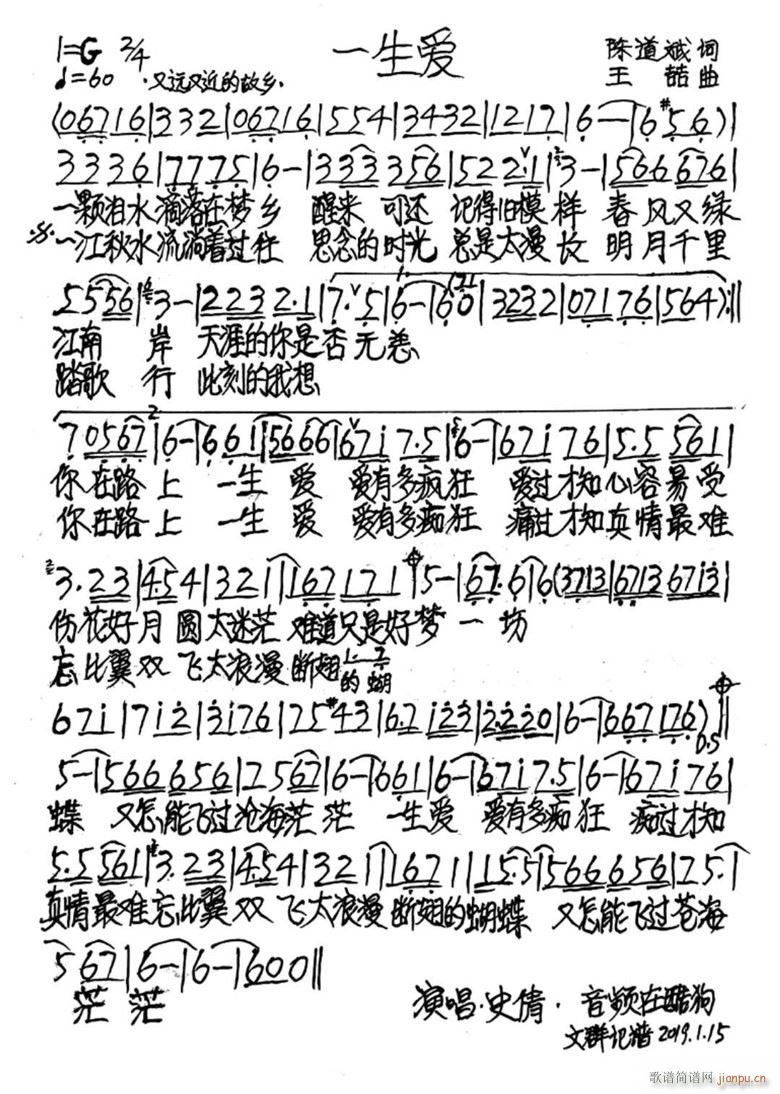 1=G 2/4 一生爱 陈道斌 词
♩=60 · 又远又近的故乡 · 王 喆 曲
(067 16|332|067 16|554|3432|1217|6－|6 #5 6)‖
3336|7775|6－|333 356|522 2·1|3－|566 676|
一颗泪水滴落在梦乡 醒来 可还 记得旧模样 春风又绿
一江秋水流淌着过往 思念的时光 总是太漫长 明月千里
5556|3－|2232 2·1|7·5|6－|60|3232|0717 6|564):‖
江南 岸 天涯的你是否无恙
踏歌 行 此刻的我想
7 0567|6－|661|5666|671 7·5|6－|671 76|5·5 561|
你在路上 一生 爱 爱有多疯狂 爱过才知心容易受
你在路上 一生 爱 爱有多痴狂 痛过才知真情最难
3·23|454|321|167 171|5－|67·6|6(3713|6713 6713|
伤花好月 圆太迷茫 难道只是好梦 一 场
忘比翼双 飞太浪漫断翅
的 蝴
671|712|3176|75 #43|6·7 123|2·220|6－|667 176)‖
0.5
5－|566 656|2567|6－|661|6－|671 7·5|6－|671 761|
蝶 又怎能飞过沧海茫 茫 一生爱 爱有多痴狂 痴过才知
5·5 561|3·23|454|321|1671|115·5|566 656|75·|
真情最难忘比翼双 飞太浪漫断翅的蝴蝶 又怎能飞过苍海
567|6－|6－|600‖
茫 茫 演唱·史倩 · 音频在酷狗
文群记谱 2019.1.15
歌谱简谱网 jianpu.cn